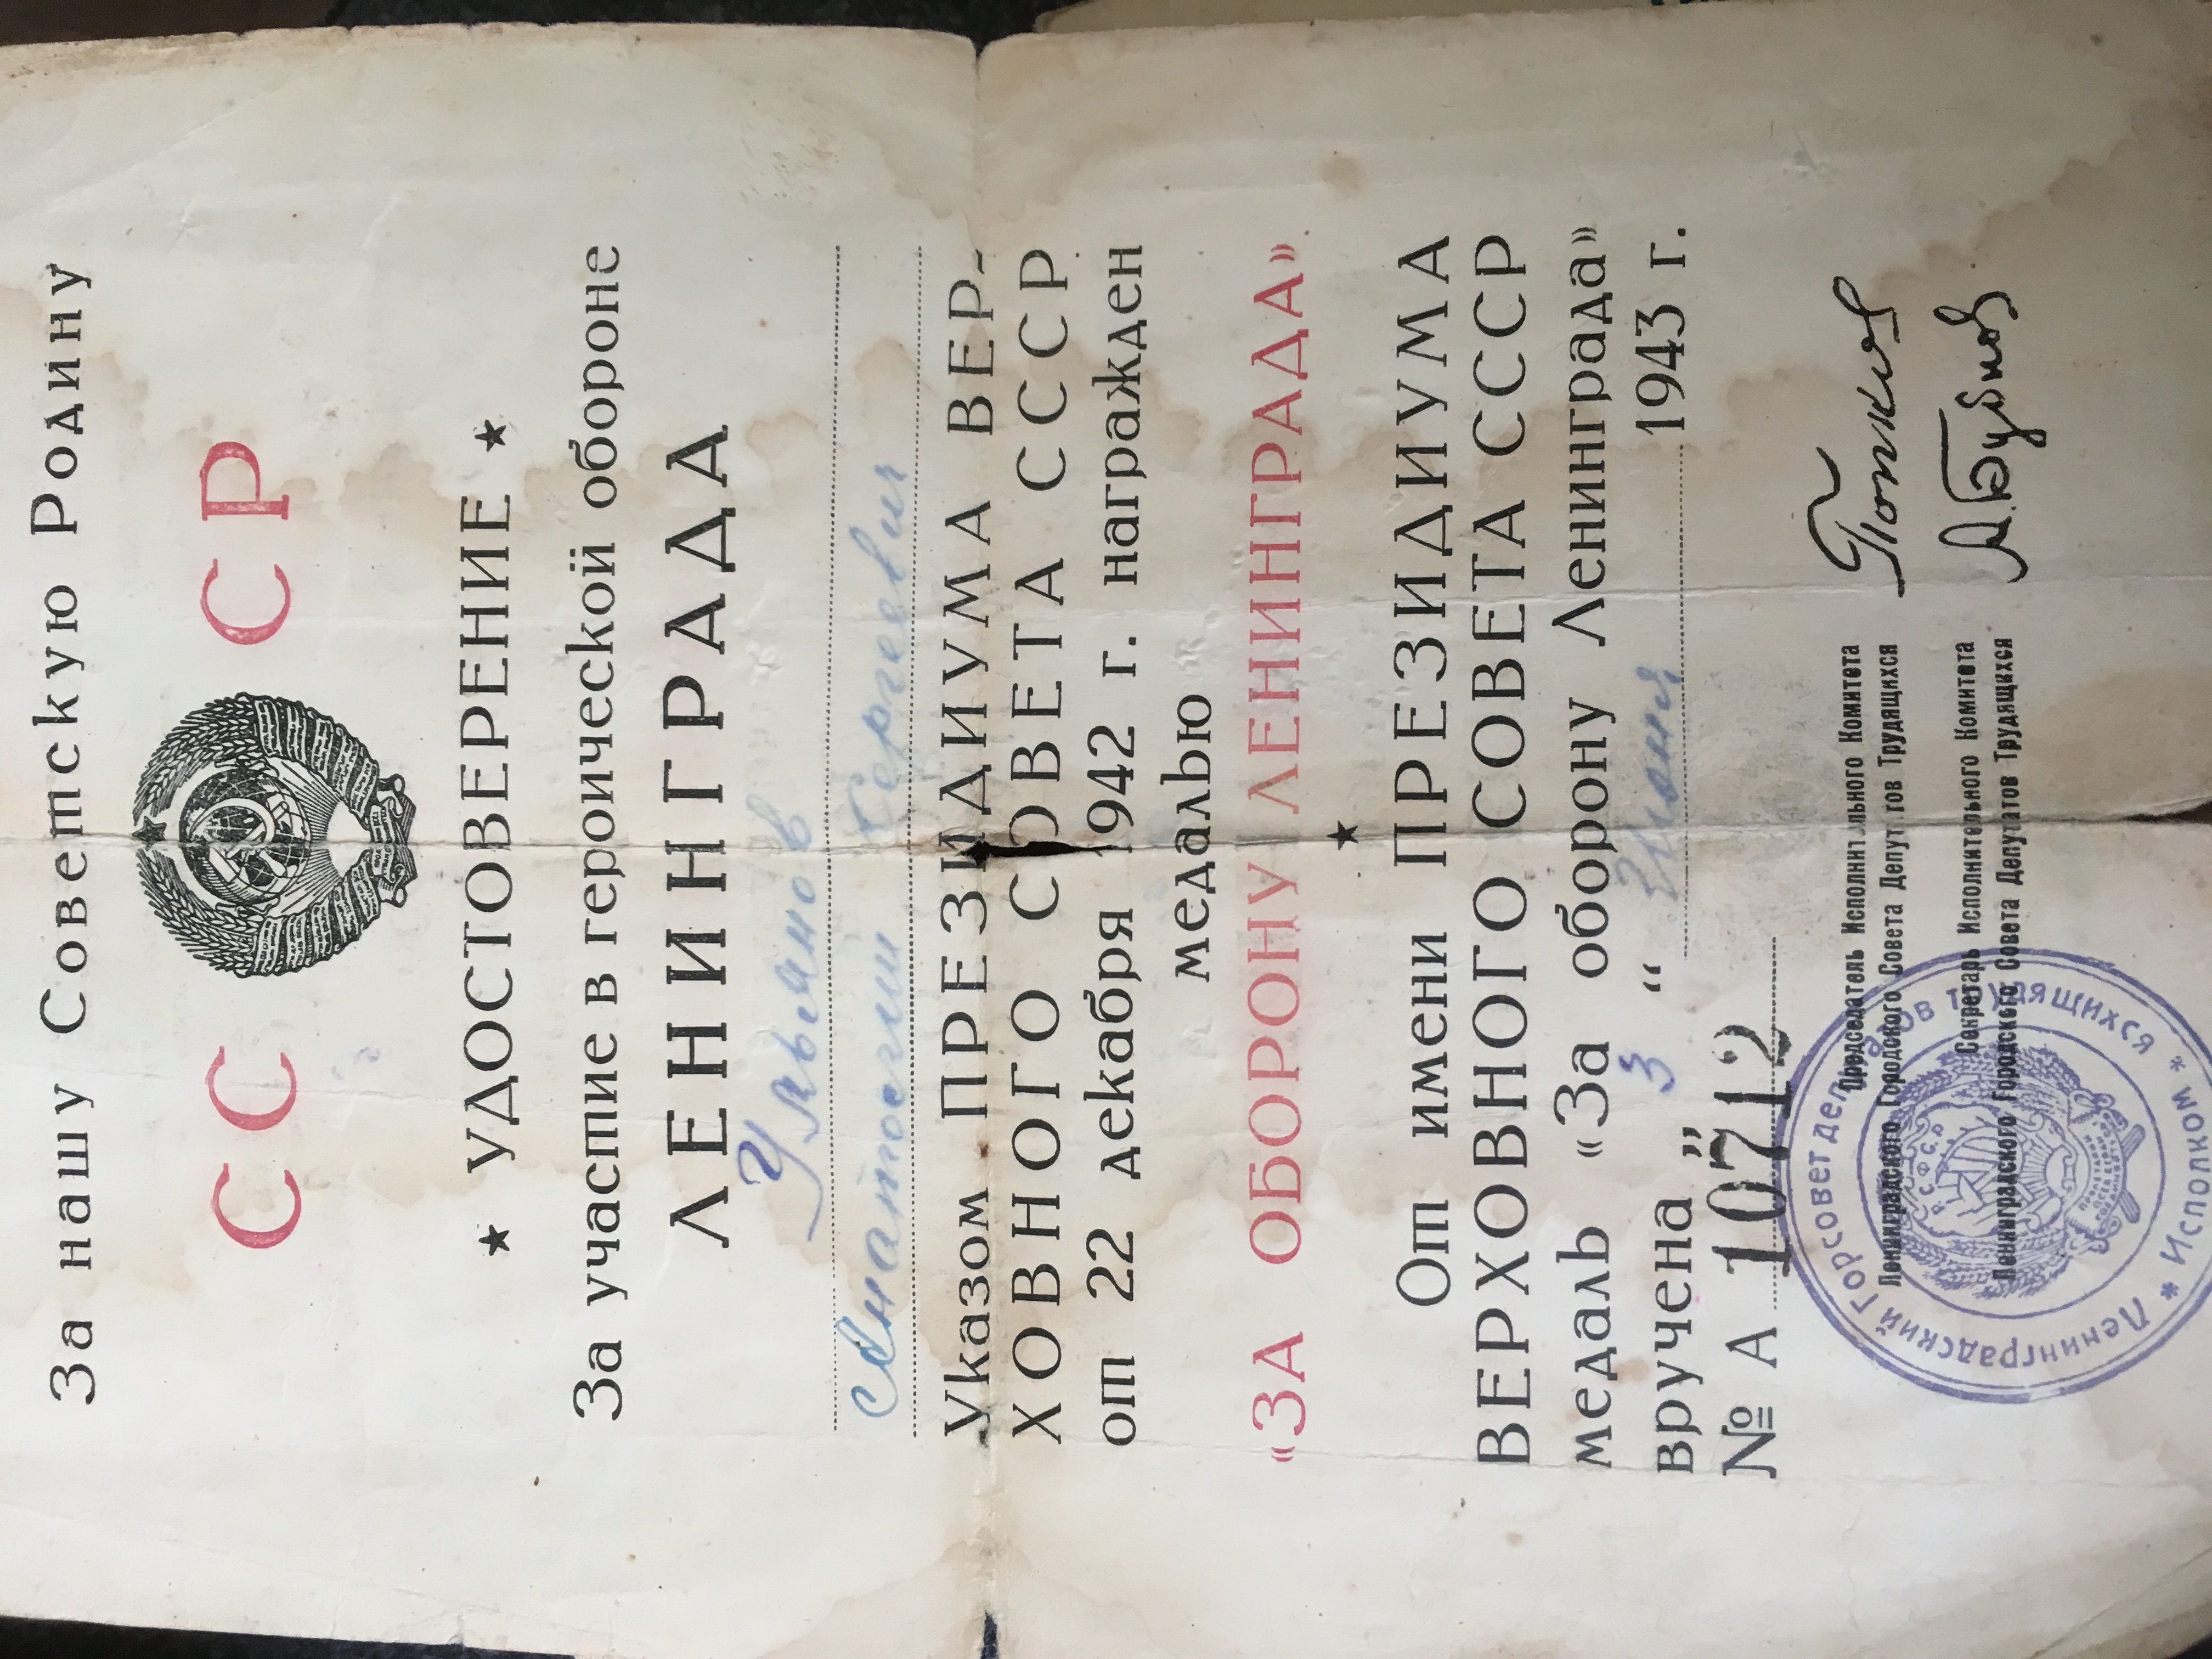 За нашу Советскую Родину
СС СР
★ УДОСТОВЕРЕНИЕ ★
За участие в героической обороне
ЛЕНИНГРАДА
Ульянов
Анатолий Сергеевич
Указом ПРЕЗИДИУМА ВЕР-
ХОВНОГО СОВЕТА СССР
от 22 декабря 1942 г. награжден
медалью
«ЗА ОБОРОНУ ЛЕНИНГРАДА»
★
От имени ПРЕЗИДИУМА
ВЕРХОВНОГО СОВЕТА СССР
медаль «За оборону Ленинграда»
вручена „ 3 “ Июня 1943 г.
№ А 10712
Председатель Исполнительного Комитета
Ленинградского Городского Совета Депутатов Трудящихся
Попков
Секретарь Исполнительного Комитета
Ленинградского Городского Совета Депутатов Трудящихся
А. Бубнов
Ленинградский Горсовет депутатов трудящихся * Исполком *
Р.С.Ф.С.Р.